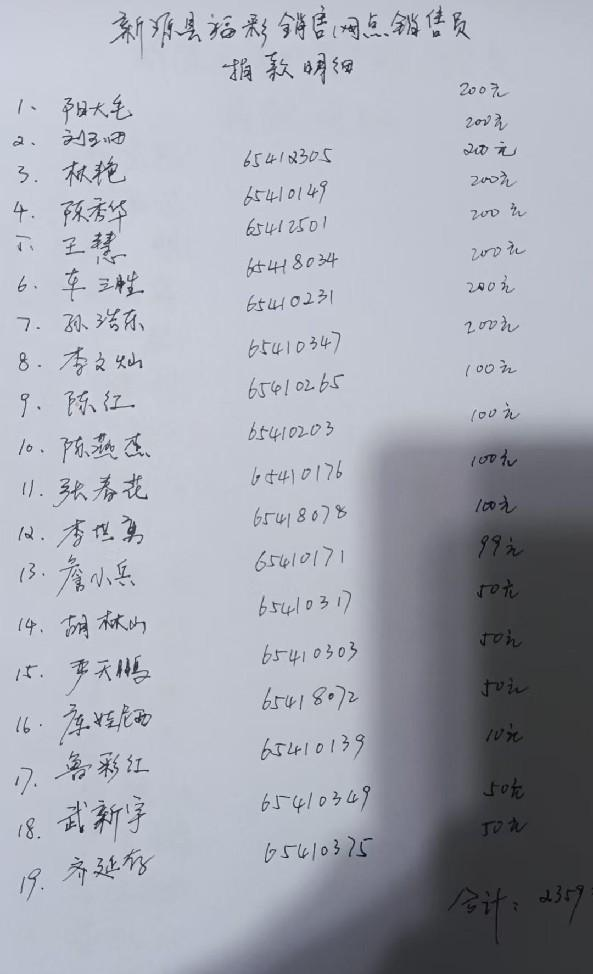 新源县福彩销售网点销售员
捐款明细
1、阳大毛 200元
2、刘玉 200元
3、林艳 65412305 200元
4、陈秀华 65410149 200元
王慧 65412501 200元
6、车三胜 65418034 200元
7、孙浩东 65410231 200元
8、李文灿 65410347 200元
9、陈红 65410265 100元
10、陈燕 65410203 100元
11、张春花 65410176 100元
12、李 65418078 100元
13、詹小兵 65410171 99元
14、胡林山 65410317 50元
15、天鹏 65410303 50元
16、65418072 50元
17、鲁彩红 65410139 10元
18、武新宇 65410349 50元
19、齐延存 65410375 50元
合计：2359